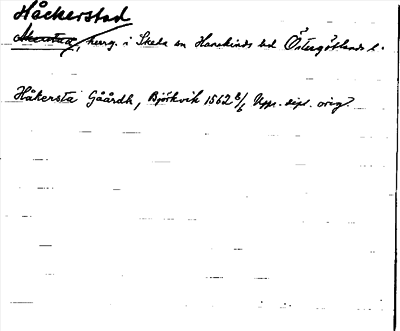 Håckerstad
Åkerstad, herrg. i Skeda sn Hanekinds hd Östergötlands l.
Håkersta Gåårdh, Björkvik 1562 8/6 Upps. dipl. orig?